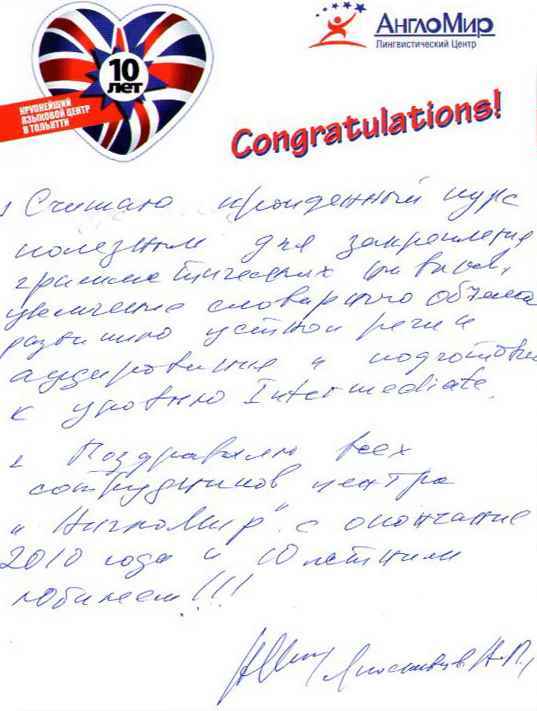 10
ЛЕТ
КРУПНЕЙШИЙ
ЯЗЫКОВОЙ ЦЕНТР
В ТОЛЬЯТТИ
АнглоМир
Лингвистический Центр
Congratulations!
1 Считаю пройденный курс
полезным для закрепления
грамматических навыков,
увеличение словарного объема
развитию устной речи и
аудирования и подготовки
к уровню Intermediate.
2 Поздравляю всех
сотрудников центра
"АнглоМир" с окончание
2010 года и 10 летним
юбилеем!!!
Н.П.